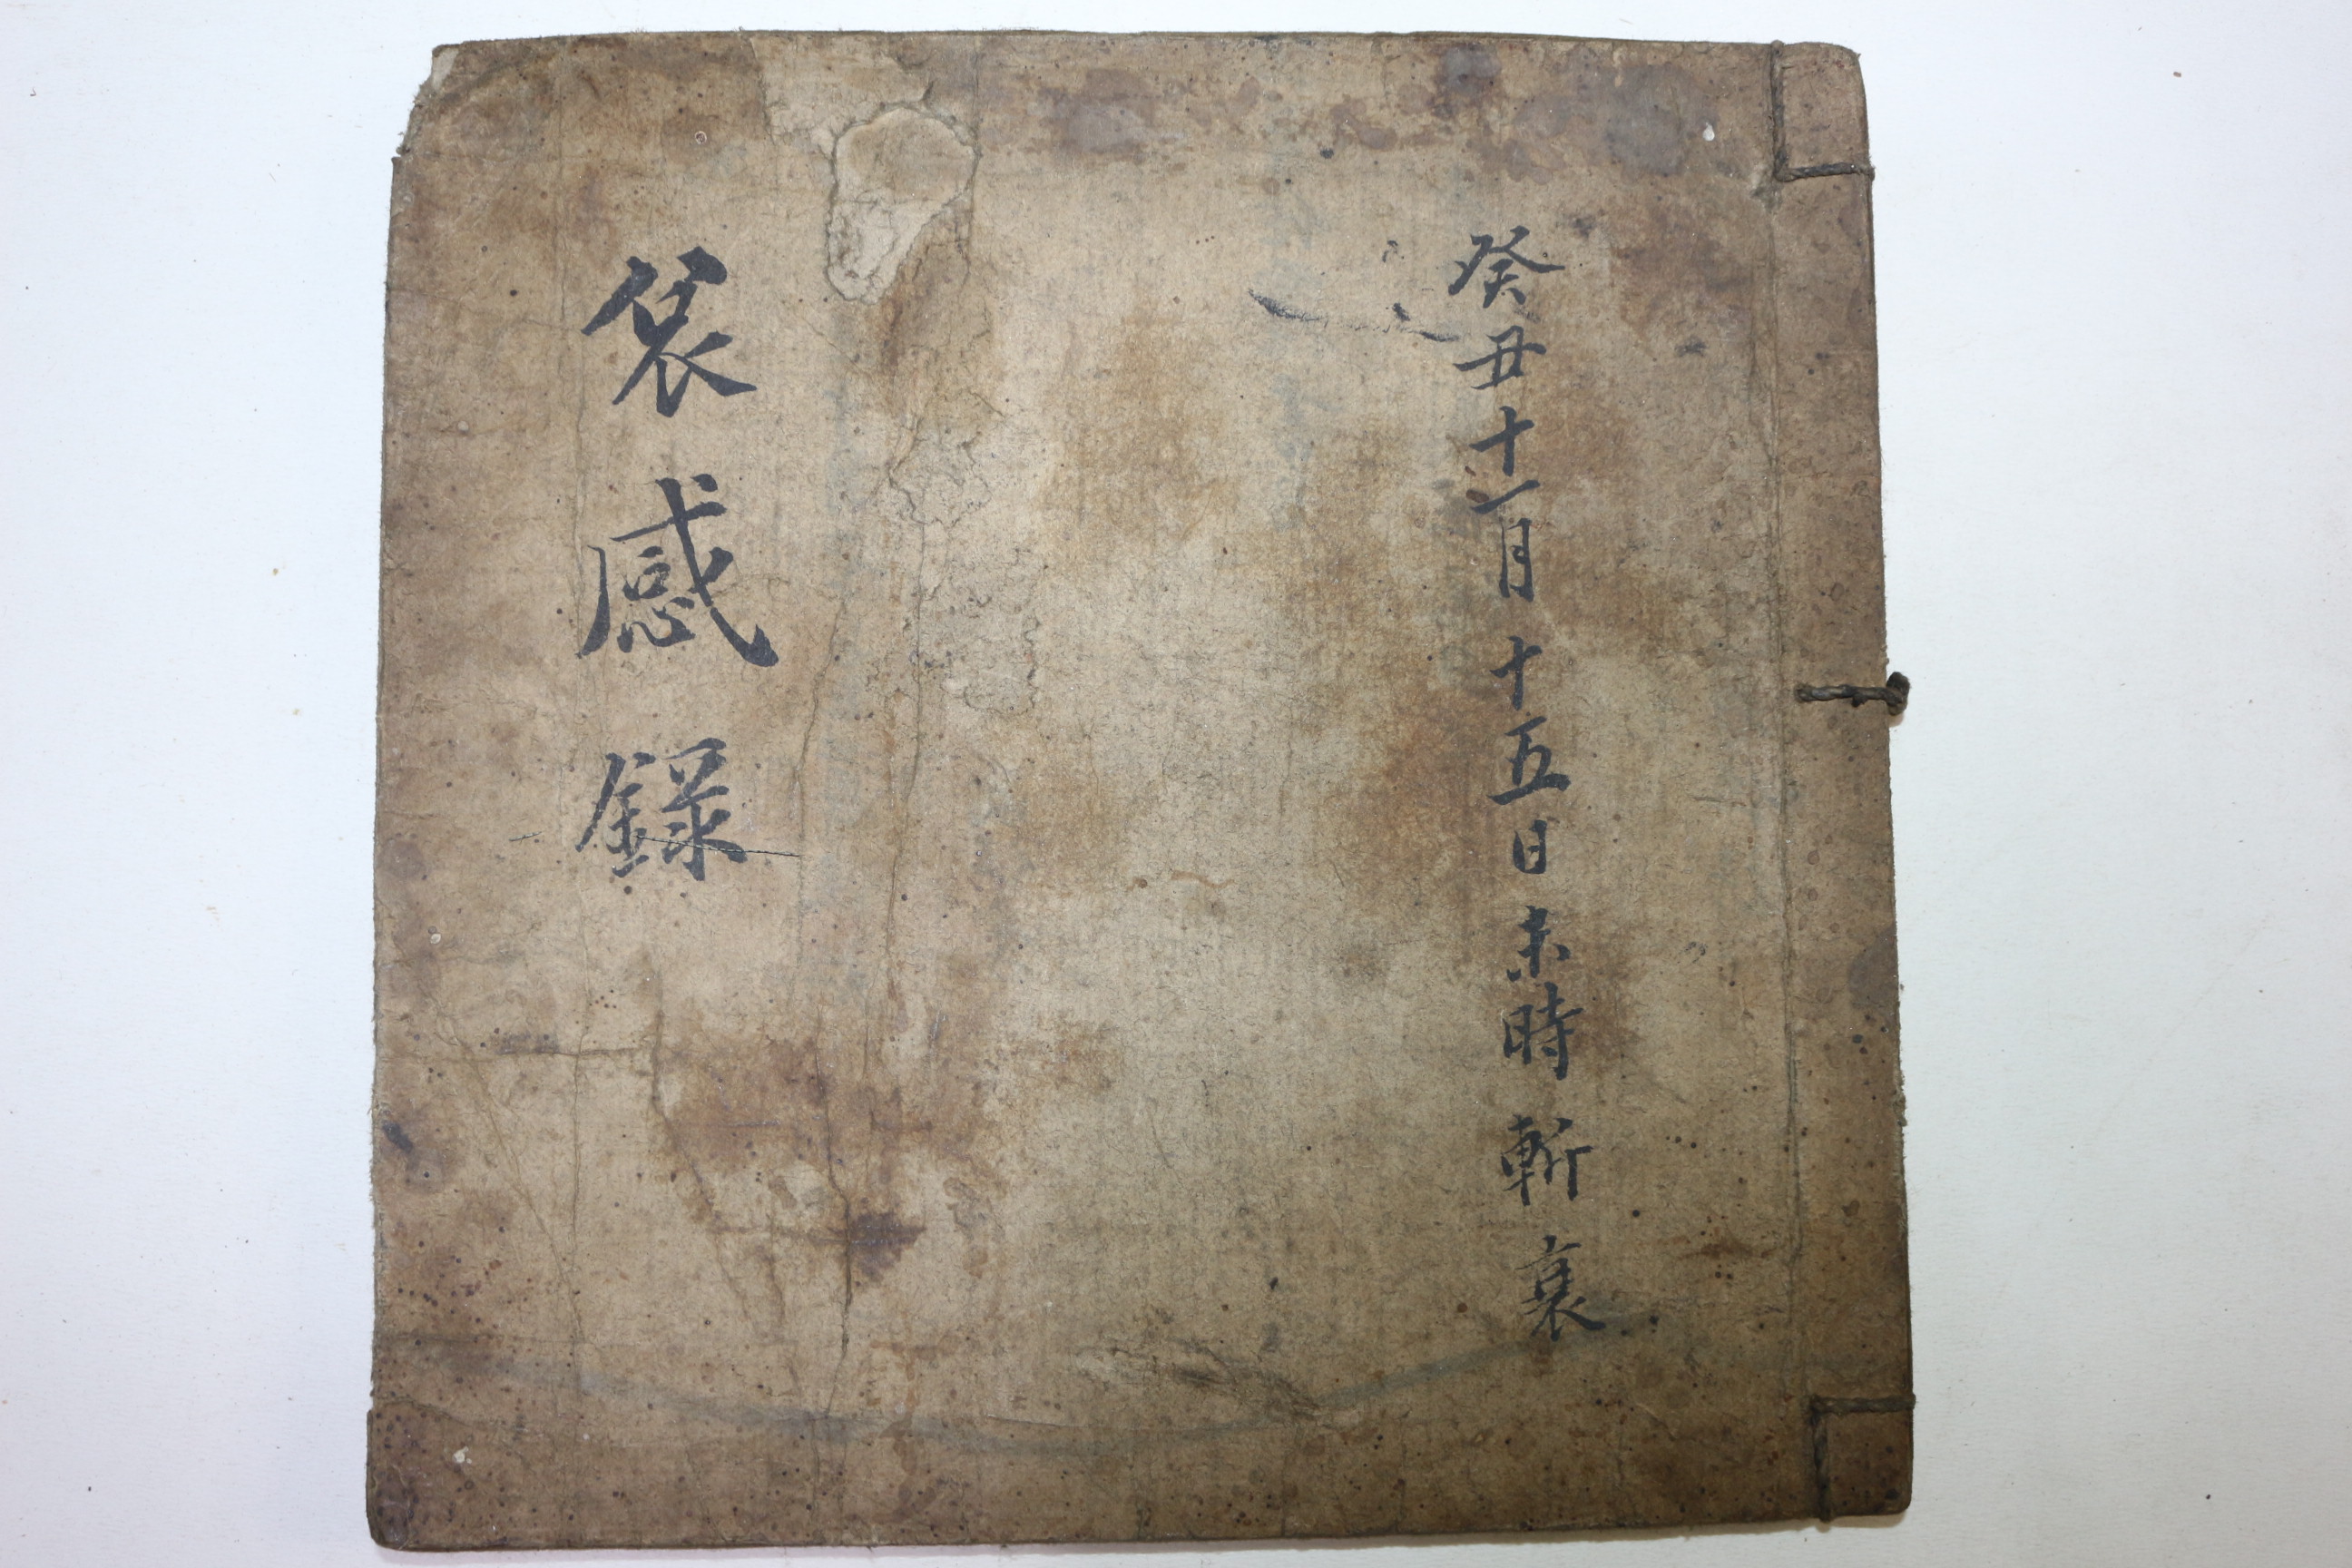 癸丑十一月十五日未時斬衰
哀感錄